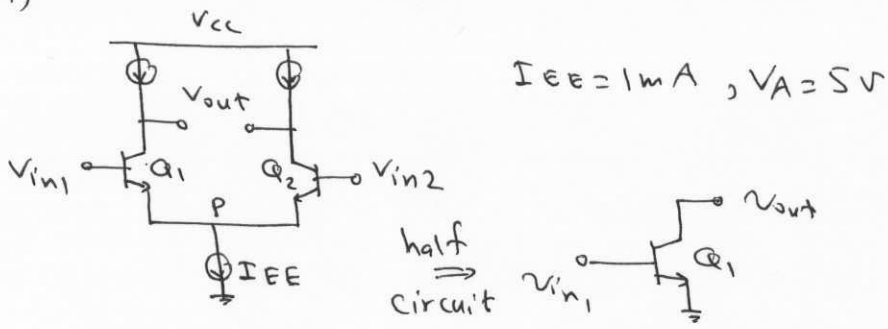 Vcc
IEE = 1mA , VA = 5V
Vout
Vin1
Q1
Q2
Vin2
P
IEE
half
circuit
Vin1
Q1
Vout